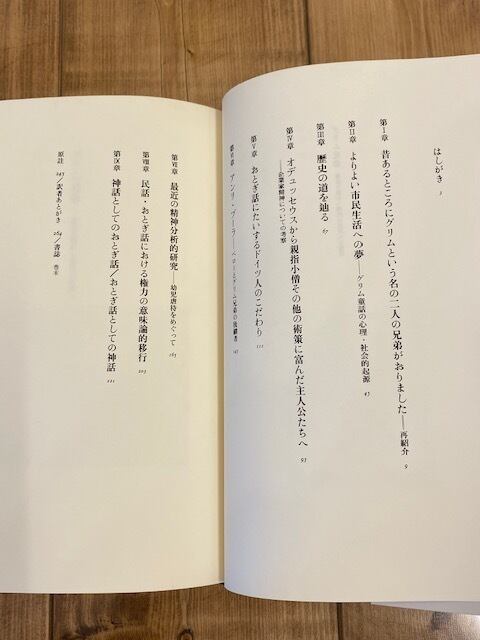 はしがき 3
第Ⅰ章 昔あるところにグリムという名の二人の兄弟がおりました——再紹介 9
第Ⅱ章 よりよい市民生活への夢——グリム童話の心理・社会的起源 43
第Ⅲ章 歴史の道を辿る 67
第Ⅳ章 オデュッセウスから親指小僧その他の術策に富んだ主人公たちへ
——企業家精神についての考察 93
第Ⅴ章 おとぎ話にたいするドイツ人のこだわり 111
第Ⅵ章 アンリ・プーラ——ペローとグリム兄弟の後継者 141
第Ⅶ章 最近の精神分析的研究——幼児虐待をめぐって 165
第Ⅷ章 民話・おとぎ話における権力の意味論的移行 203
第Ⅸ章 神話としてのおとぎ話／おとぎ話としての神話 221
原註 247／訳者あとがき 264／書誌 巻末